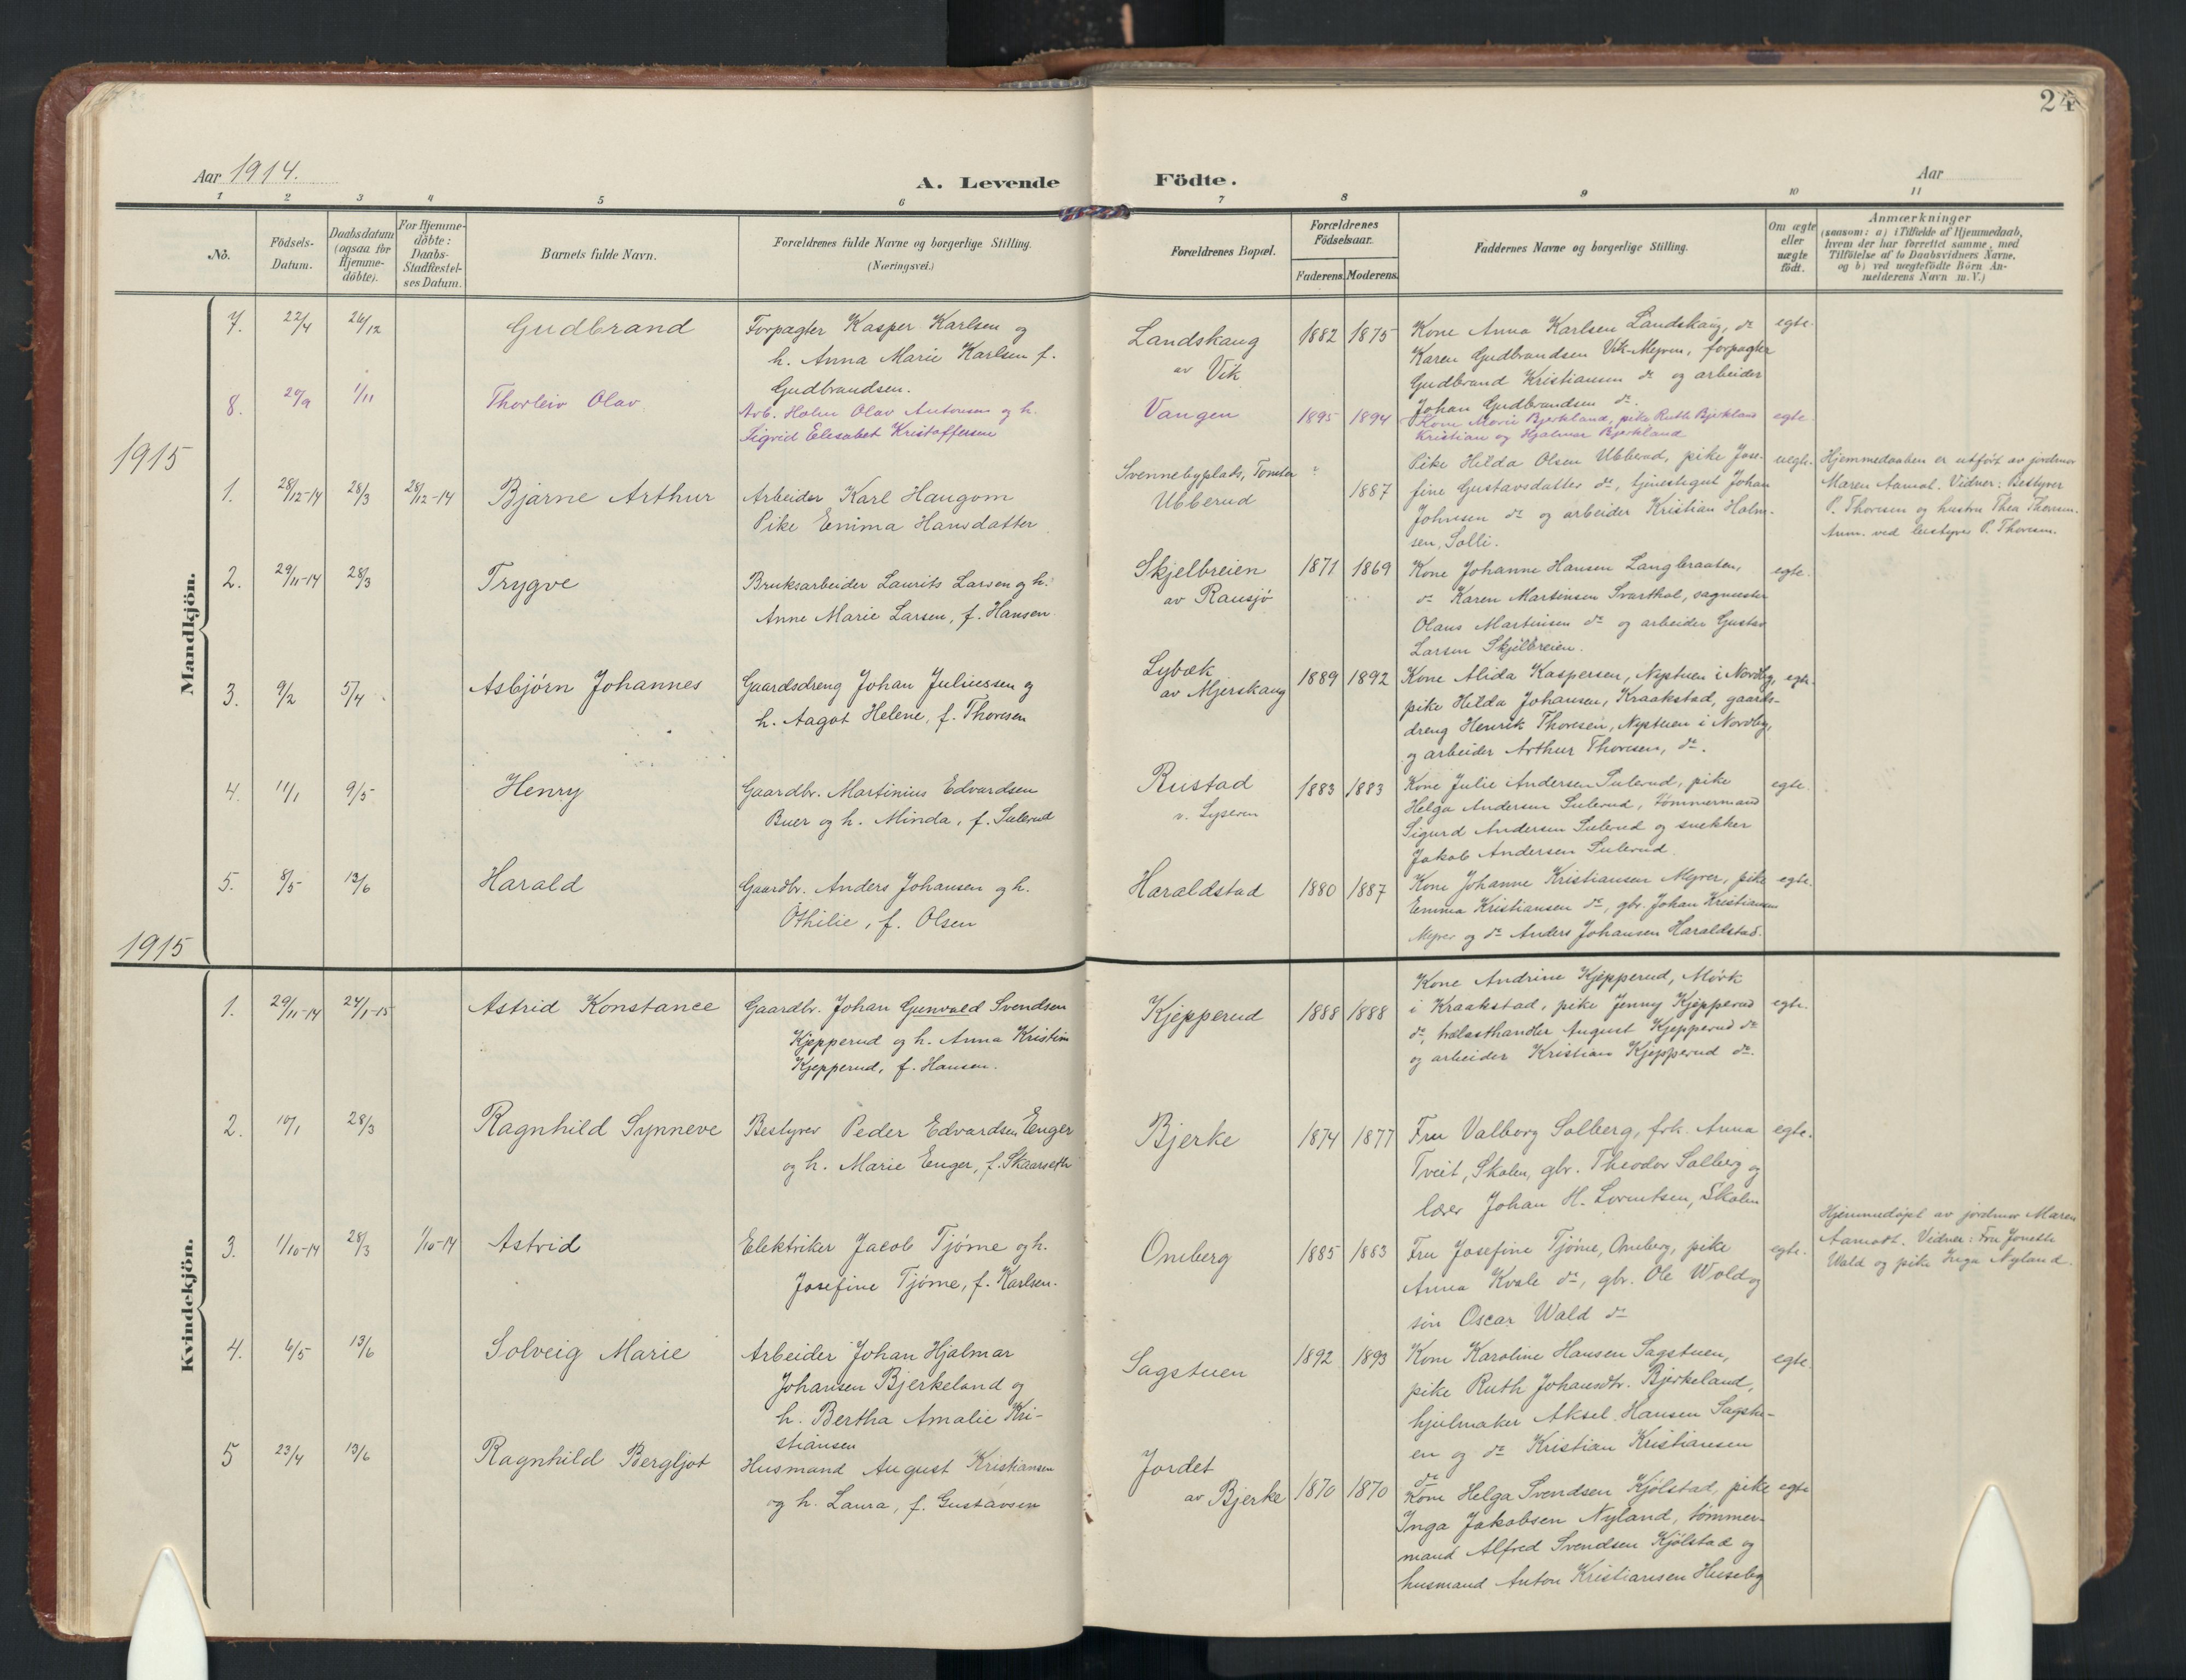 24
Aar 1914.
A. Levende Födte.
Aar
1 2 3 4 5 6 7 8 9 10 11
No.
Födsels-Datum.
Daabsdatum (ogsaa for Hjemme-döbte).
For Hjemme-döbte: Daabs-Stadfæstel-ses Datum.
Barnets fulde Navn.
Forældrenes fulde Navne og borgerlige Stilling.
(Næringsvei.)
Forældrenes Bopæl.
Forældrenes Födselsaar.
Faderens. Moderens.
Faddernes Navne og borgerlige Stilling.
Om ægte eller uægte födt.
Anmærkninger
(saasom: a) i Tilfælde af Hjemmedaab, hvem der har forrettet samme, med Tilföielse af to Daabsvidners Navne. og b) ved uægtefödte Börn An-melderens Navn m. V.)
Mandkjön.
7. 22/4 26/12 Gudbrand
Forpagter Kasper Karlsen og
h. Anna Marie Karlsen f.
Gudbrandsen.
Landskaug
av Vik
1882 1875
Kone Anna Karlsen Landskaug, do
Karen Gudbrandsen Vik-Myren, forpagter
Gudbrand Kristiansen do og arbeider
Johan Gudbrandsen do.
egte.
8. 20/9 1/11 Thorleiv Olav
Arb. Holm Olav Antonsen og h.
Sigrid Elisabet Kristoffersen
Vangen
1895 1894
Kone Marie Bjerkland, pike Ruth Bjerkland
Kristian og Hjalmar Bjerkland
egte.
1915
1. 28/12-14 28/3 28/12-14 Bjarne Arthur
Arbeider Karl Haugom
Pike Emma Hansdatter
Svennebyplads, Tomter
Ubberud
1887
Pike Hilda Olsen Ubberud, pike Jose-
fine Gustavsdatter do, tjenestegut Johan
Johnsen do og arbeider Kristian Holm-
sen, Solli.
uegte.
Hjemmedaaben er utført av jordmor
Maren Aamot. Vidner: Bestyrer
P. Thoresen og hustru Thea Thoresen.
Anm. ved bestyrer P. Thoresen.
2. 29/11-14 28/3 Trygve
Bruksarbeider Laurits Larsen og h.
Anne Marie Larsen, f. Hansen.
Skjelbreien
av Rausjø
1871 1869
Kone Johanne Hansen Langbraaten,
do Karen Martinsen Svarthol, sagmester
Olaus Martinsen do og arbeider Gustav
Larsen Skjelbreien.
egte.
3. 9/2 5/4 Asbjørn Johannes
Gaardsdreng Johan Juliussen og
h. Aagot Helene, f. Thoresen
Lybæk
av Mjerskaug
1889 1892
Kone Alida Kaspersen, Nystuen i Nordby,
pike Hilda Johansen, Kraakstad, gaards-
dreng Henrik Thoresen, Nystuen i Nordby,
og arbeider Arthur Thoresen, do.
egte.
4. 11/1 9/5 Henry
Gaardbr. Martinius Edvardsen
Buer og h. Minda, f. Sulerud
Rustad
v. Lyseren
1883 1883
Kone Julie Andersen Sulerud, pike
Helga Andersen Sulerud, tømmermand
Sigurd Andersen Sulerud og snekker
Jakob Andersen Sulerud.
egte.
5. 8/5 13/6 Harald
Gaardbr. Anders Johansen og h.
Othilie, f. Olsen
Haraldstad
1880 1887
Kone Johanne Kristiansen Myrer, pike
Emma Kristiansen do, gbr. Johan Kristiansen
Myrer og do Anders Johansen Haraldstad.
egte.
1915
Kvindekjön.
1. 29/11-14 24/1-15 Astrid Konstance
Gaardbr. Johan Gunvald Svendsen
Kjepperud og h. Anna Kristine
Kjepperud, f. Hansen.
Kjepperud
1888 1888
Kone Andrine Kjepperud, Mørk
i Kraakstad, pike Jenny Kjepperud
do, trælasthandler August Kjepperud do
og arbeider Kristian Kjepperud do.
egte.
2. 10/1 28/3 Ragnhild Synneve
Bestyrer Peder Edvardsen Enger
og h. Marie Enger, f. Skaarseth
Bjerke
1874 1877
Fru Valborg Solberg, frk. Anna
Tveit, Skolen, gbr. Theodor Solberg og
lærer Johan H. Lorentsen, Skolen
egte.
3. 1/10-14 28/3 1/10-14 Astrid
Elektriker Jacob Tjøme og h.
Josefine Tjøme, f. Karlsen.
Omberg
1885 1883
Fru Josefine Tjøme, Omberg, pike
Anna Kvale do, gbr. Ole Wold og
søn Oscar Wald do
egte.
Hjemmedøpt av jordmor Maren
Aamodt. Vidner: Fru Jonette
Wald og pike Inga Nyland.
4. 6/5 13/6 Solveig Marie
Arbeider Johan Hjalmar
Johansen Bjerkeland og
h. Bertha Amalie Kri-
stiansen
Sagstuen
1892 1893
Kone Karoline Hansen Sagstuen,
pike Ruth Johansdtr. Bjerkeland,
hjulmaker Aksel Hansen Sagstu-
en og do Kristian Kristiansen
do
egte.
5 23/4 13/6 Ragnhild Bergljot
Husmand August Kristiansen
og h. Laura, f. Gustavsen
Jordet
av Bjerke
1870 1870
Kone Helga Svendsen Kjølstad, pike
Inga Jakobsen Nyland, tømmer-
mand Alfred Svendsen Kjølstad og
husmand Anton Kristiansen Huseby
egte